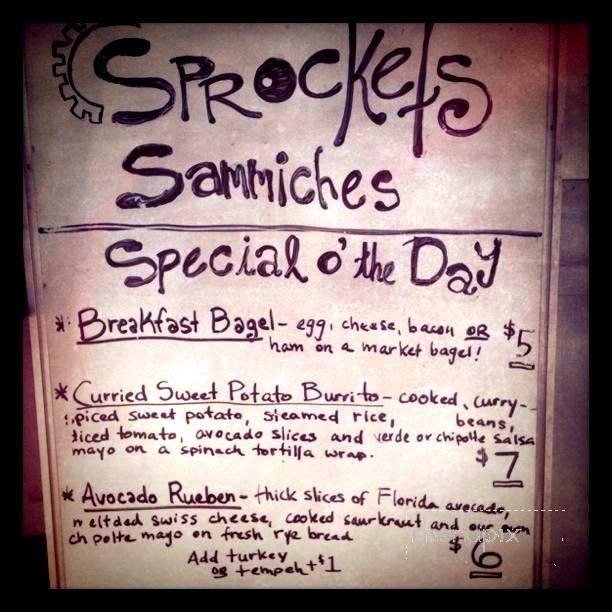 Sprockets
Sammiches
Special o' the Day
* Breakfast Bagel - egg, cheese, bacon OR $5
ham on a market bagel!
* Curried Sweet Potato Burrito - cooked, curry-
spiced sweet potato, steamed rice, beans,
diced tomato, avocado slices and verde or chipotle salsa
mayo on a spinach tortilla wrap.
$7
* Avocado Rueben - thick slices of Florida avocado,
meltded swiss cheese, cooked saurkraut and our own
ch polte mayo on fresh rye bread
$6
Add turkey
or tempeh + $1